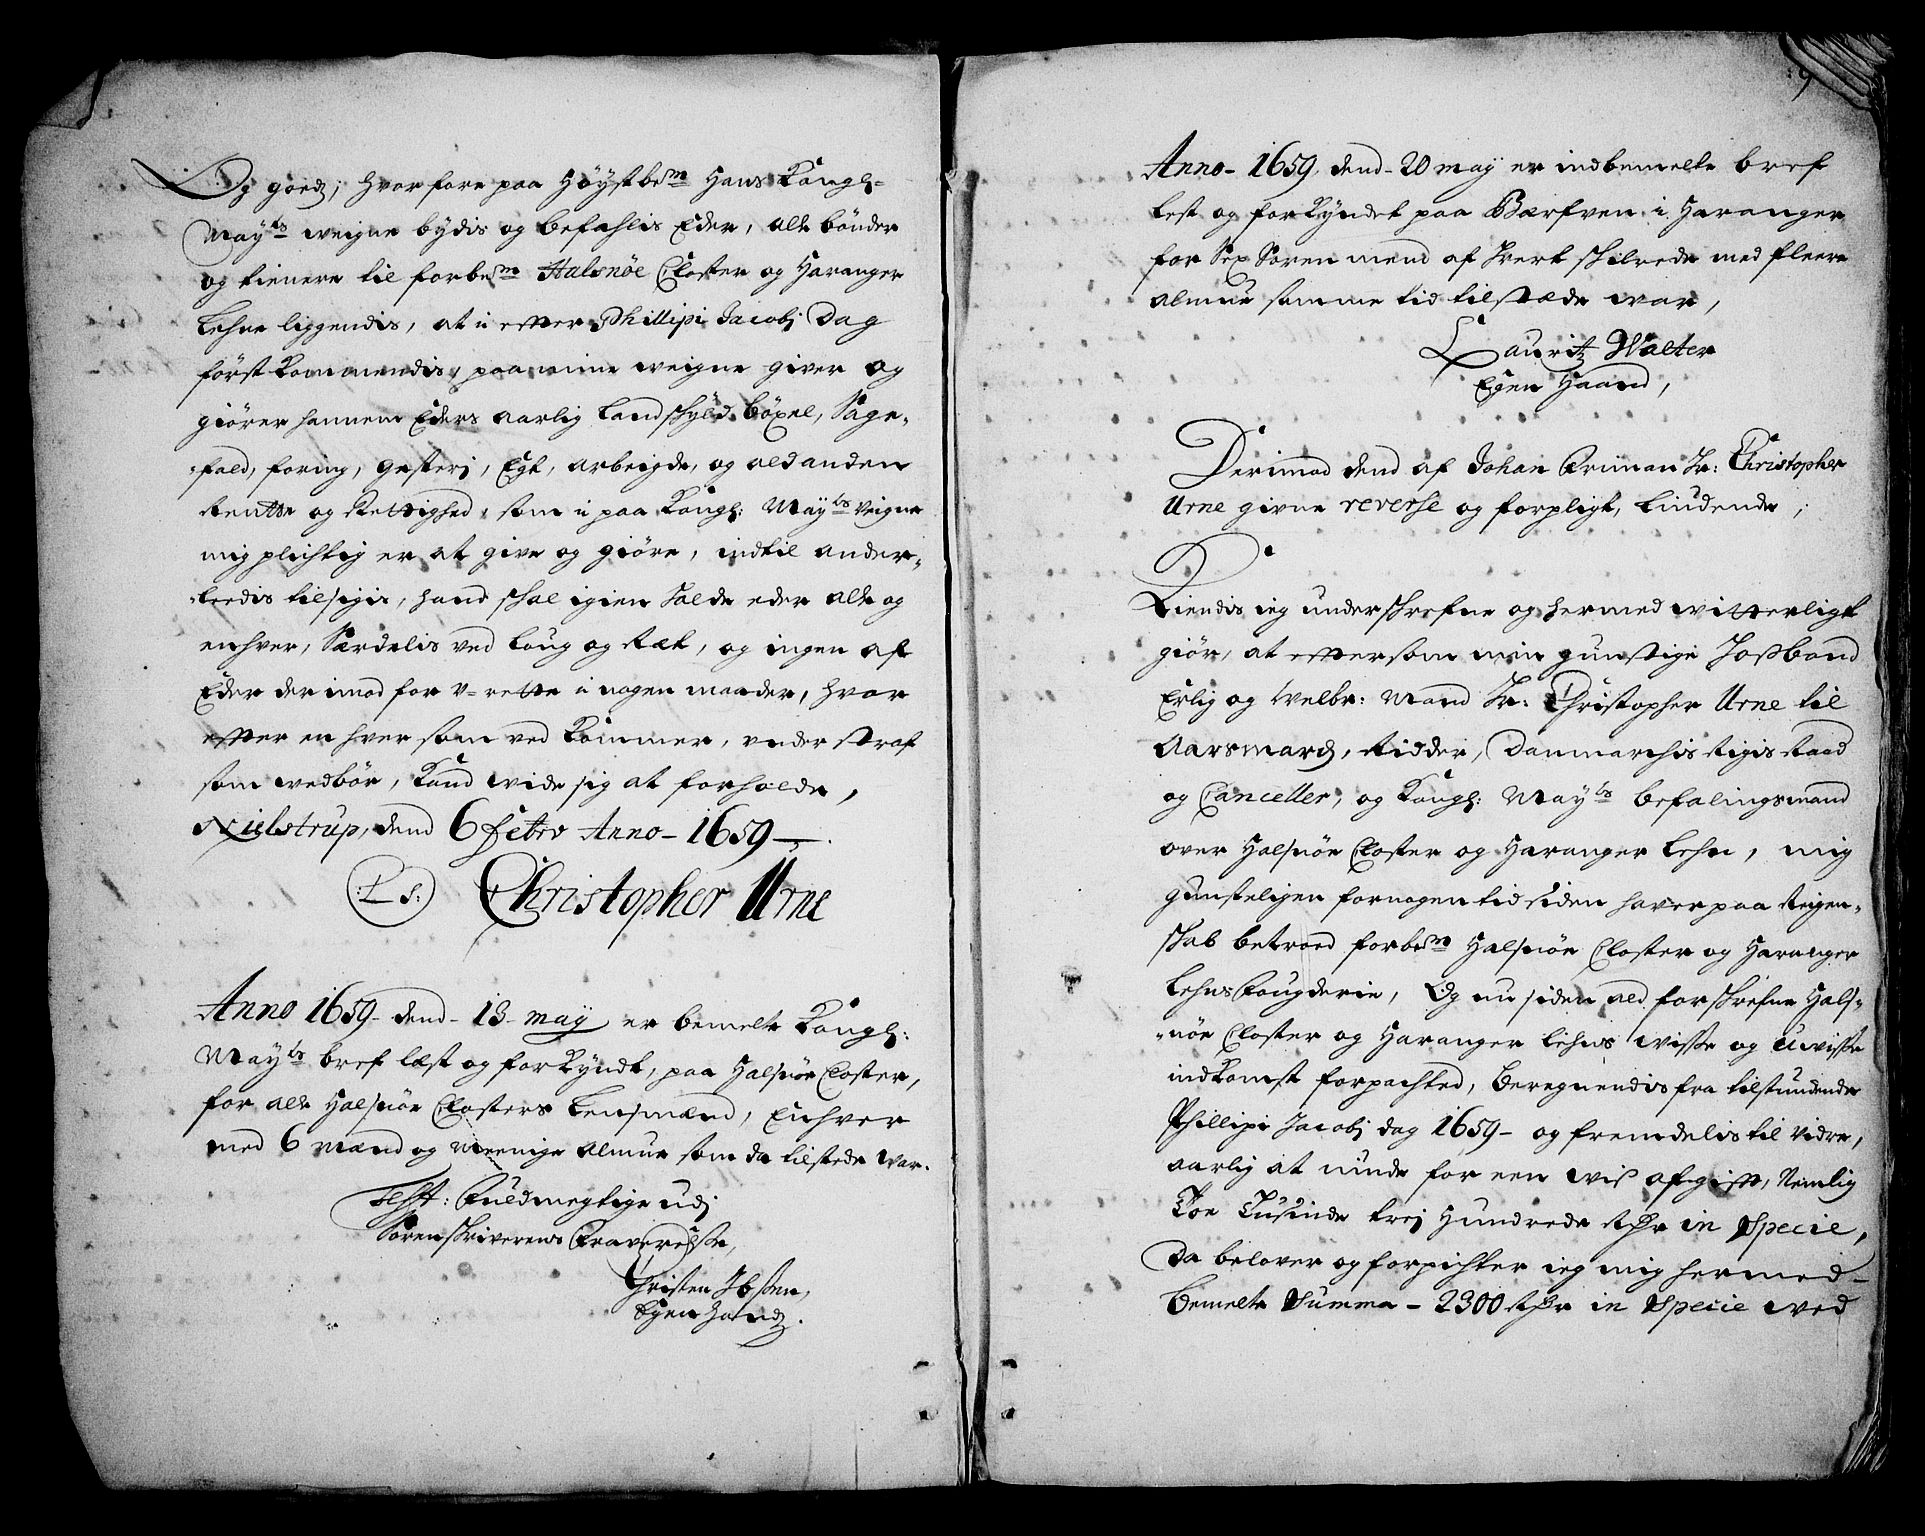 Og goed; hvorfore paa Høystbem Hans Kongl-
Mayts weigne bydis og befahlis Eder, alle bønder
og tienere til forbem Halsnöe Closter og Haranger
Lehne liggendis, at i effter Phillipi Jacobj Dag
først kommendis, paa mine weigne giver og
giører hannem Eders aarlig landschyld bøxel, Sage-
-fald, foring, gesterj, Egt, arbeigde, og ald anden
Rentte og Rettighed, som i paa Kongl: Mayts Veigne
mig plichtig er at give og giøre, indtil ander-
-ledis tilsigis, hand schal igien holde eder alle og
enhver, Særdelis ved Loug og Ræt, og ingen af
Eder der imod for v-rette i nogen maader, hvor
effter en hver som ved kommer, vnder straf
som wedbør, kand wide sig at forholde,
Nielstrup, dend 6 febrv Anno - 1659 -
L S: Christopher Urne
Anno 1659 - dend - 13 - may er bemelte Kongl:
Mayts bref læst og forkyndt, paa Halsnöe Closter,
for alle Halsnöe Closters Lensmænd, Enhver
med 6 Mænd og Meenige almue som da tilstede war.
Test: Fuldmegtige udj
Sorenskriverens fraverelse,
Christen Ibsen,
Egen Hand.
9
Anno - 1659, dend - 20 may er indbemelte bref
lest og forkyndet paa Bærfven i Haranger
for Sex Soren mend af huert schibrede med fleere
almue somme tid tilstæde war,
Lauritz Walter
Egen Haand,
Derimod dend af Johan Friman Hr: Christopher
Urne givne reverse og forpligt, liudende,
Kiendis ieg underschrefne og hermed witterligt
giör, at effter som min gunstige Hossbond
Erlig og Welbr: Mand Hr: Christopher Urne til
Aarsmarch, Ridder, Danmarchis Rigis Raad
og Canceller, og Kongl: Mayts befalingsmand
over Halsnöe Closter og Haranger Lehn, mig
gunsteligen for nogen tid siden haver paa Regen-
schab betroed forbem Halsnöe Closter og Haranger
Lehns Fougderie, Og nu siden ald forschrefne Hals-
-nöe Closter og Haranger Lehns wisse og uwisse
indkomst forpachted, Beregnendis fra tilstundende
Phillipi Jacobj dag 1659 - og fremdelis til vidre,
aarlig at niude for een wis afgifft, Nemlig
Toe Tusinde trej Hundrede Rdr in Specie,
Da belover og forpichter ieg mig hermed
Bemelte Summa - 2300 Rdr in Specie wed